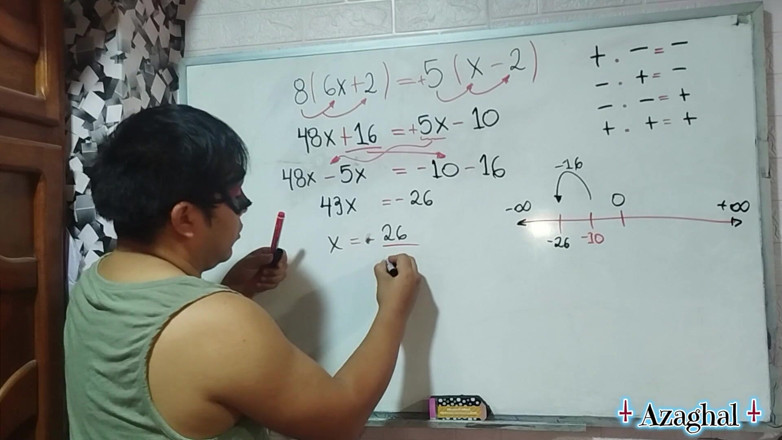 8(6x+2)=+5(x-2)
48x+16=+5x-10
48x-5x=-10-16
43x=-26
x=-26
+.-=-
-.+=-
-.-=+
+.+=+
-16
-∞ 0 +∞
-26 -10
Azaghal